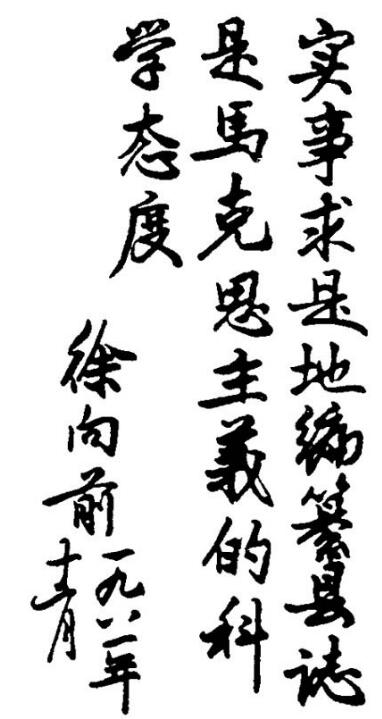 实事求是地编纂县誌
是馬克思主義的科
学态度
徐向前
一九八一年
十一月